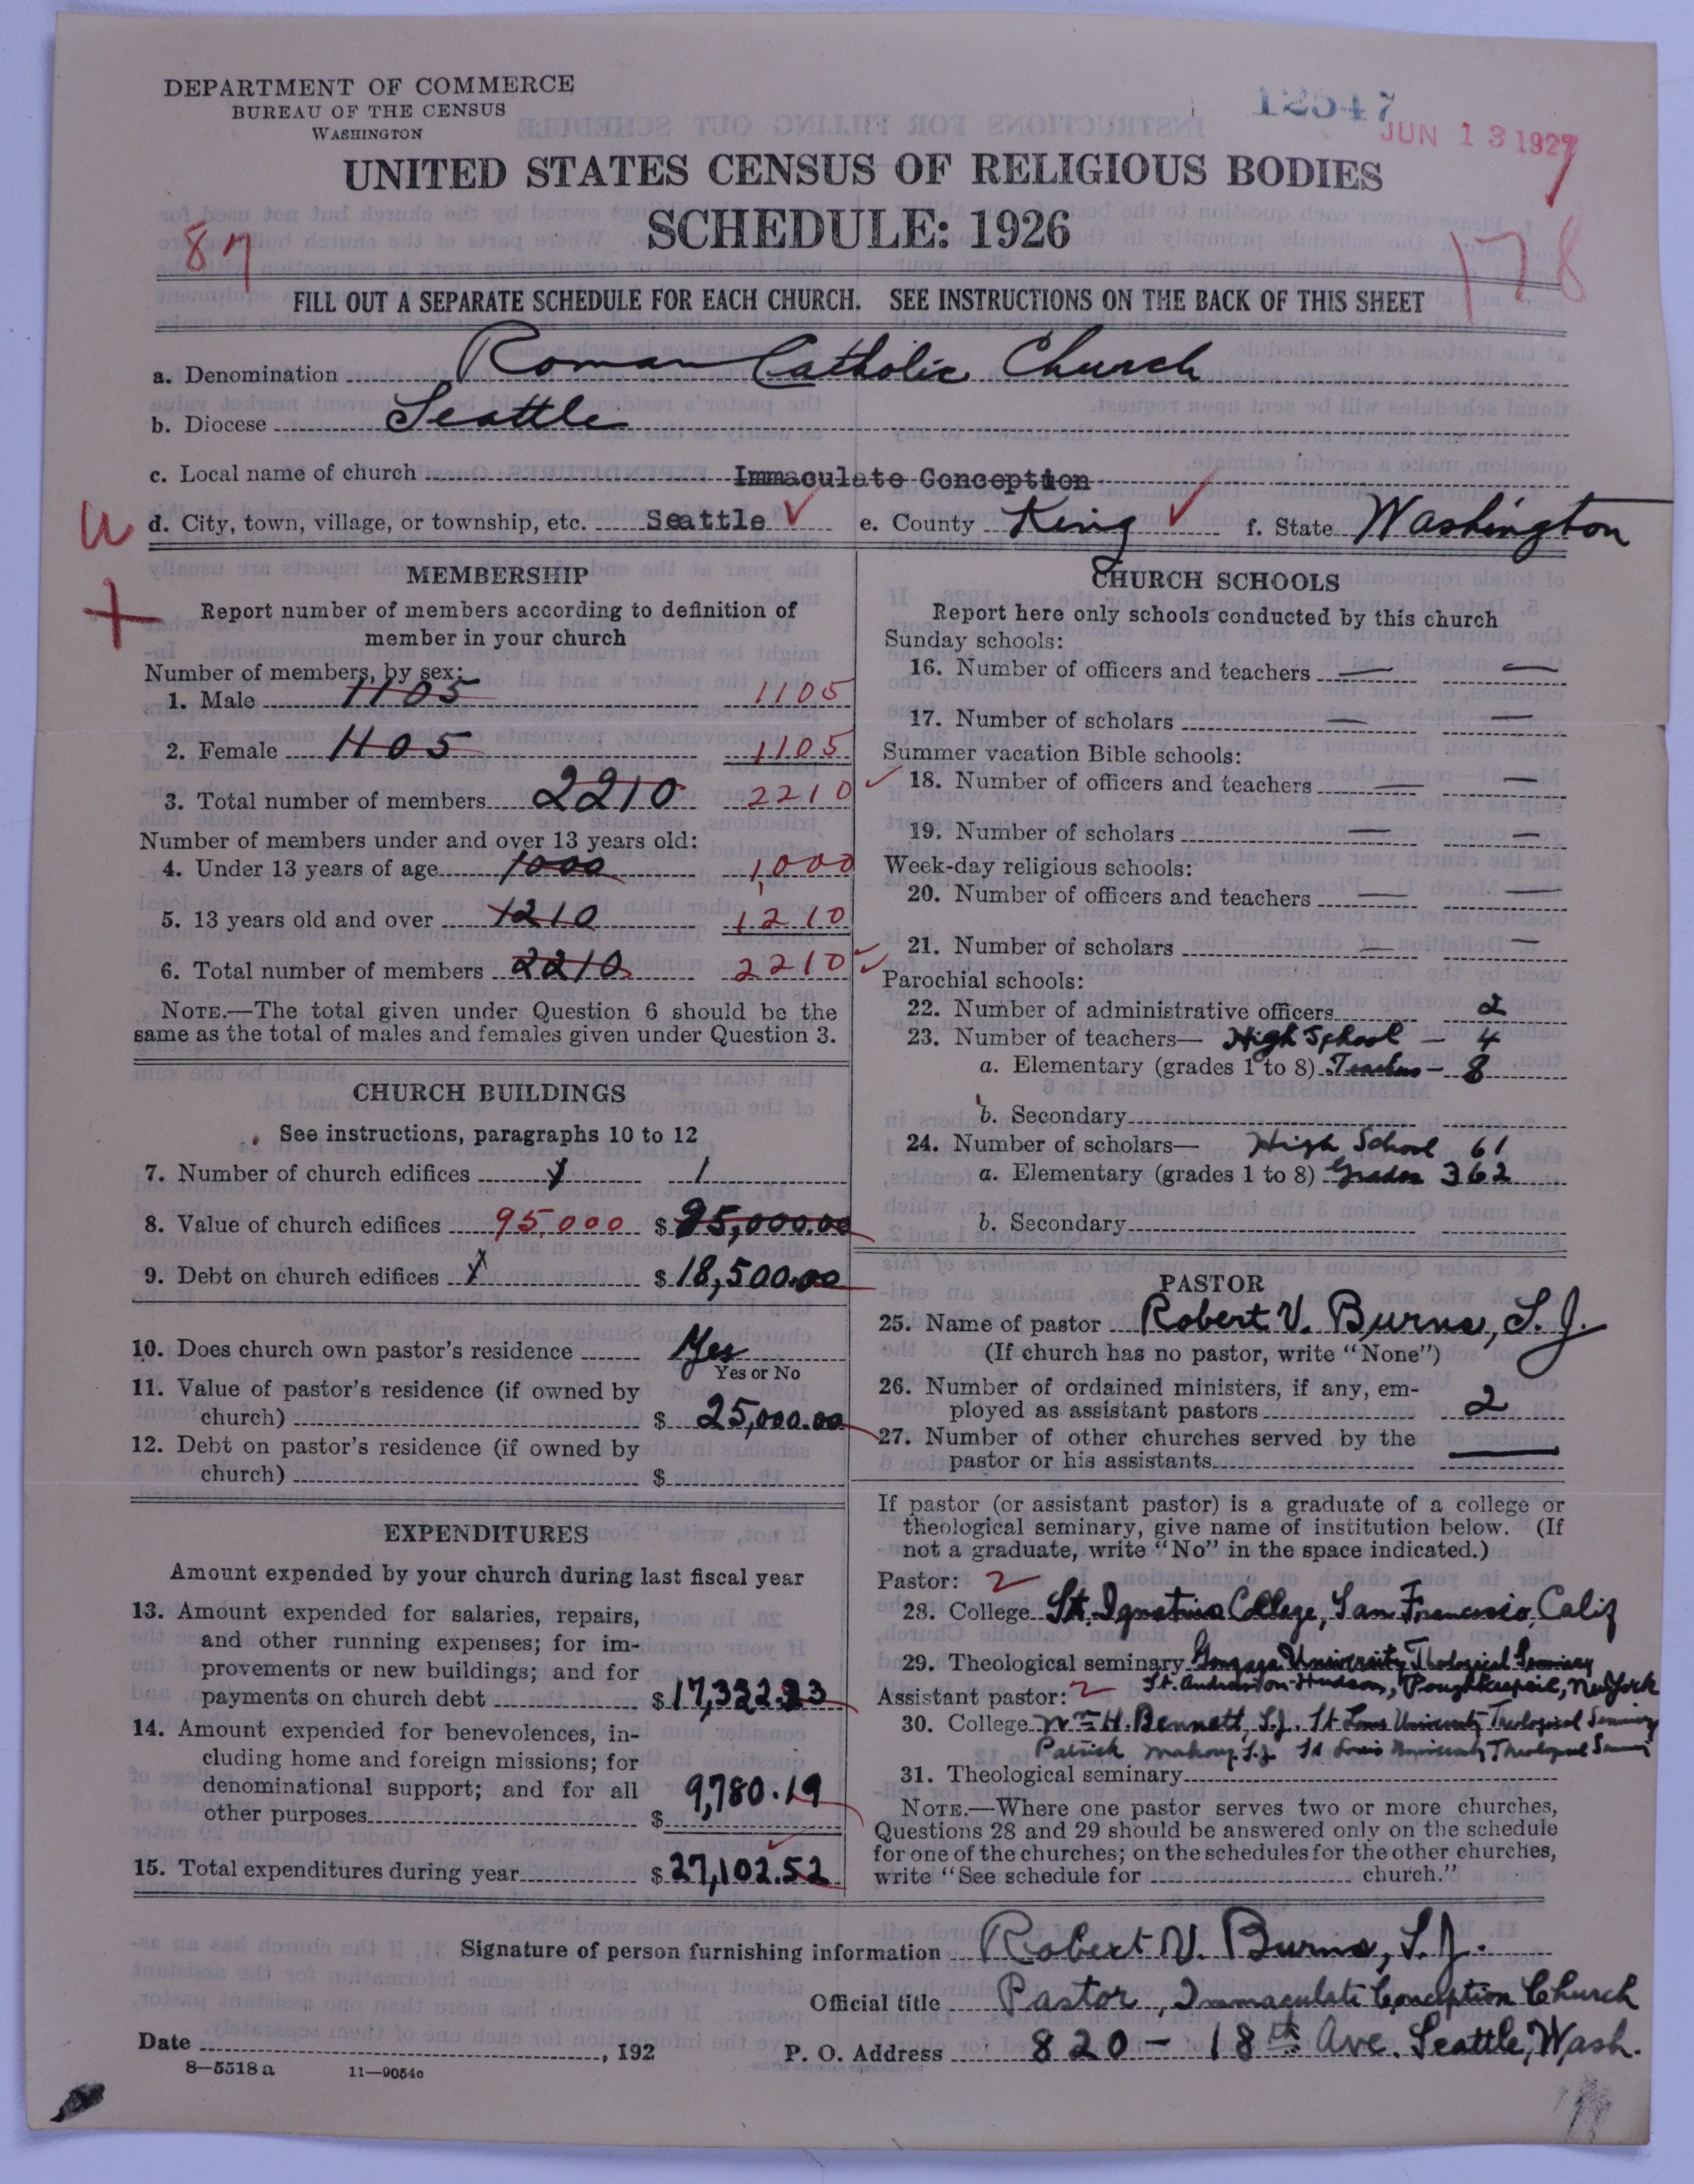 DEPARTMENT OF COMMERCE
BUREAU OF THE CENSUS
WASHINGTON
12547
JUN 13 1927
UNITED STATES CENSUS OF RELIGIOUS BODIES
SCHEDULE: 1926
87
178
FILL OUT A SEPARATE SCHEDULE FOR EACH CHURCH. SEE INSTRUCTIONS ON THE BACK OF THIS SHEET
a. Denomination Roman Catholic Church
b. Diocese Seattle
c. Local name of church Immaculate Conception
d. City, town, village, or township, etc. Seattle e. County King f. State Washington
MEMBERSHIP
Report number of members according to definition of
member in your church
Number of members, by sex:
1. Male 1105 1105
2. Female 1105 1105
3. Total number of members 2210 2210
Number of members under and over 13 years old:
4. Under 13 years of age 1000 1,000
5. 13 years old and over 1210 1210
6. Total number of members 2210 2210
NOTE.—The total given under Question 6 should be the
same as the total of males and females given under Question 3.
CHURCH BUILDINGS
See instructions, paragraphs 10 to 12
7. Number of church edifices 1 1
8. Value of church edifices 95,000 $ 95,000.00
9. Debt on church edifices $ 18,500.00
10. Does church own pastor's residence Yes
Yes or No
11. Value of pastor's residence (if owned by
church) $ 25,000.00
12. Debt on pastor's residence (if owned by
church) $
EXPENDITURES
Amount expended by your church during last fiscal year
13. Amount expended for salaries, repairs,
and other running expenses; for im-
provements or new buildings; and for
payments on church debt $ 17,322.33
14. Amount expended for benevolences, in-
cluding home and foreign missions; for
denominational support; and for all
other purposes $ 9,780.19
15. Total expenditures during year $ 27,102.52
CHURCH SCHOOLS
Report here only schools conducted by this church
Sunday schools:
16. Number of officers and teachers — —
17. Number of scholars — —
Summer vacation Bible schools:
18. Number of officers and teachers — —
19. Number of scholars — —
Week-day religious schools:
20. Number of officers and teachers — —
21. Number of scholars — —
Parochial schools:
22. Number of administrative officers 2
23. Number of teachers— High School — 4
a. Elementary (grades 1 to 8) Teachers — 8
b. Secondary
24. Number of scholars— High School 61
a. Elementary (grades 1 to 8) Grades 362
b. Secondary
PASTOR
25. Name of pastor Robert V. Burns, S.J.
(If church has no pastor, write "None")
26. Number of ordained ministers, if any, em-
ployed as assistant pastors 2
27. Number of other churches served by the
pastor or his assistants —
If pastor (or assistant pastor) is a graduate of a college or
theological seminary, give name of institution below. (If
not a graduate, write "No" in the space indicated.)
Pastor: 2
28. College St. Ignatius College, San Francisco, Calif
29. Theological seminary Gonzaga University Theological Seminary
St. Andrew-on-Hudson, Poughkeepsie, New York
Assistant pastor: 2
30. College Wm H. Bennett, S.J. St Louis University Theological Seminary
Patrick Mahony S.J. St Louis University Theological
31. Theological seminary
NOTE.—Where one pastor serves two or more churches,
Questions 28 and 29 should be answered only on the schedule
for one of the churches; on the schedules for the other churches,
write "See schedule for church."
Signature of person furnishing information Robert V. Burns, S.J.
Official title Pastor, Immaculate Conception Church
Date , 192 P. O. Address 820 - 18th Ave. Seattle, Wash.
8—5518 a 11—9054c